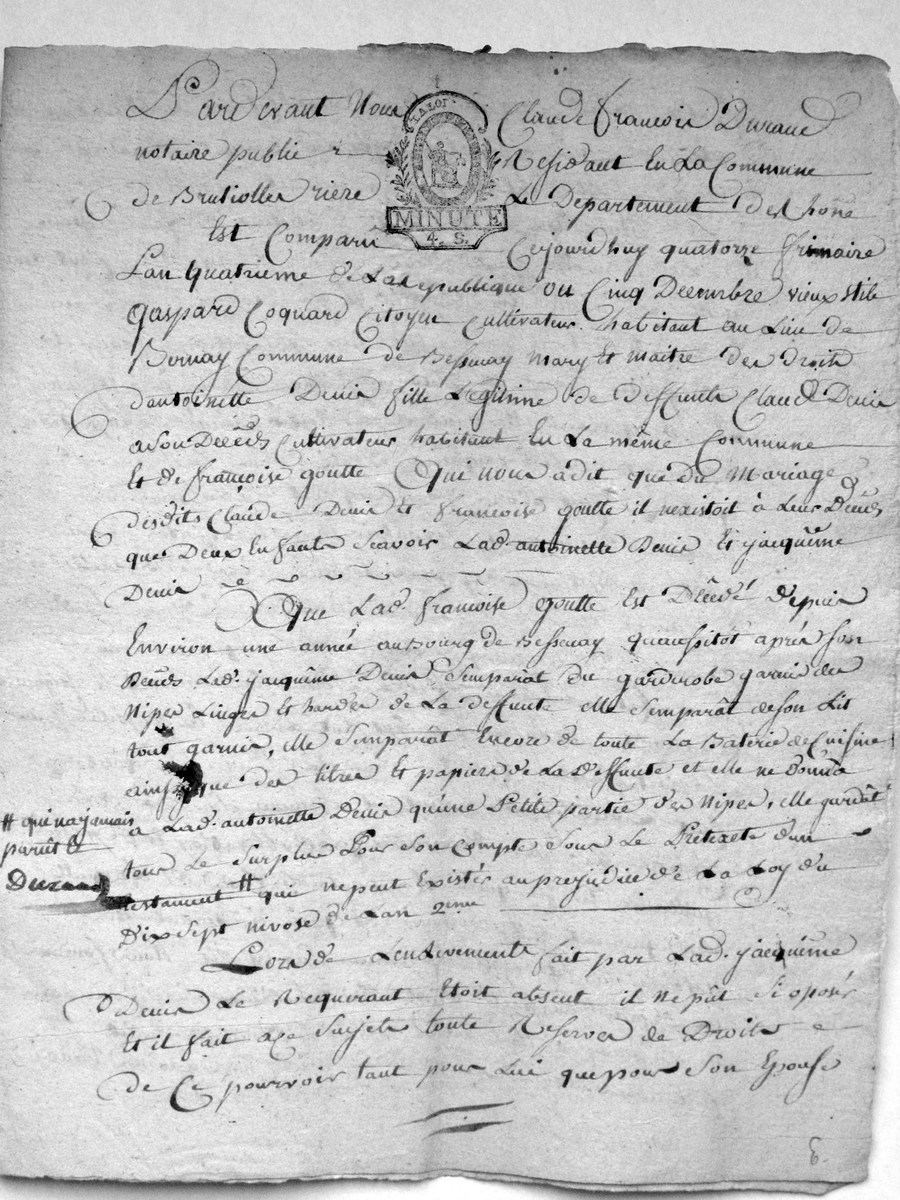 Pardevant Nous Claude françois Durand
LA LOI
notaire public Residant En La Commune
de Brussiolles rière Le Département de Rhône
MINUTE
4. S.
Est Comparu Cejourdhuy quatorze frimaire
Lan quatrieme de La republique ou Cinq Decembre vieux stile
gaspard Coquard Citoyen Cultivateur habitant au Lieu de
Bernay Commune de Bessenay mary Et maitre des droits
dantoinette Denis fille Legitime de deffunts Claude Denis
a son Décéds Cultivateur habitant En La même Commune
Et de françoise goutte Qui nous à dit que du Mariage
desdits Claude Denis et françoise goutte il nexistoit à Leur Décéds
que Deux Enfants Scavoir Lad. antoinette Denis Et jacquême
Denis
Que Lad. françoise goutte Est Décédé depuis
Environ une année au Bourg de Bessenay quaussitot après son
Décéds Lad. jacquême Denis Semparat du garderobe garnis des
Nipes Linges Et hardes de La deffunte elle Semparât de son Lit
tout garnis, elle Semparât Encore de toute La Baterie de Cuisine
ainsy que des titres Et papiers de La deffunte et elle ne donna
à Lad. antoinette Denis qu'une Petite partie des Nipes, elle gardât
# qui na jamais
parût &
Durand
tous Le Surplus Pour Son Compte Sous Le Pretexte d'un
testament # qui ne peut Existér au prejudice de La Loy du
Dix Sept nivose de Lan 2eme
Lors de Lenlevement fait par Lad. jacquême
Denis Le Requerant Etoit absent il ne pût Si oposér
Et il fait a ce Sujet toute Reserves de Droits
de Ce pourvoir tant pour Lui que pour Son Epouse